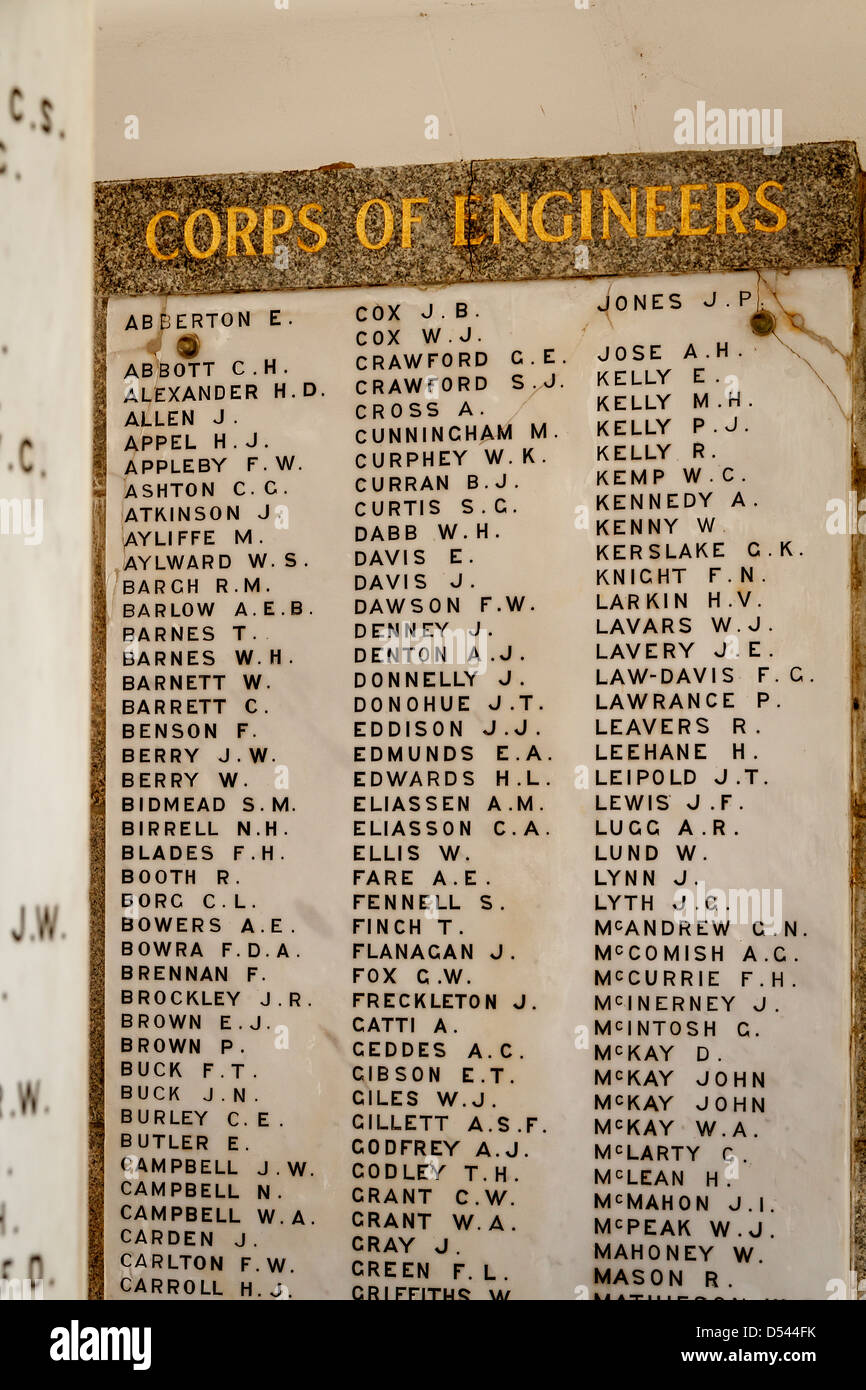 C.S.
C.
CORPS OF ENGINEERS
ABBERTON E.
ABBOTT C.H.
ALEXANDER H.D.
ALLEN J.
APPEL H.J.
APPLEBY F.W.
ASHTON C.G.
ATKINSON J.
AYLIFFE M.
AYLWARD W.S.
BARGH R.M.
BARLOW A.E.B.
BARNES T.
BARNES W.H.
BARNETT W.
BARRETT C.
BENSON F.
BERRY J.W.
BERRY W.
BIDMEAD S.M.
BIRRELL N.H.
BLADES F.H.
BOOTH R.
BORG C.L.
BOWERS A.E.
BOWRA F.D.A.
BRENNAN F.
BROCKLEY J.R.
BROWN E.J.
BROWN P.
BUCK F.T.
BUCK J.N.
BURLEY C.E.
BUTLER E.
CAMPBELL J.W.
CAMPBELL N.
CAMPBELL W.A.
CARDEN J.
CARLTON F.W.
CARROLL H.J.
COX J.B.
COX W.J.
CRAWFORD G.E.
CRAWFORD S.J.
CROSS A.
CUNNINGHAM M.
CURPHEY W.K.
CURRAN B.J.
CURTIS S.G.
DABB W.H.
DAVIS E.
DAVIS J.
DAWSON F.W.
DENNEY J.
DENTON A.J.
DONNELLY J.
DONOHUE J.T.
EDDISON J.J.
EDMUNDS E.A.
EDWARDS H.L.
ELIASSEN A.M.
ELIASSON C.A.
ELLIS W.
FARE A.E.
FENNELL S.
FINCH T.
FLANAGAN J.
FOX G.W.
FRECKLETON J.
GATTI A.
GEDDES A.C.
GIBSON E.T.
GILES W.J.
GILLETT A.S.F.
GODFREY A.J.
GODLEY T.H.
GRANT C.W.
GRANT W.A.
GRAY J.
GREEN F.L.
GRIFFITHS W
JONES J.P.
JOSE A.H.
KELLY E.
KELLY M.H.
KELLY P.J.
KELLY R.
KEMP W.C.
KENNEDY A.
KENNY W
KERSLAKE G.K.
KNIGHT F.N.
LARKIN H.V.
LAVARS W.J.
LAVERY J.E.
LAW-DAVIS F.G.
LAWRANCE P.
LEAVERS R.
LEEHANE H.
LEIPOLD J.T.
LEWIS J.F.
LUGG A.R.
LUND W.
LYNN J.
LYTH J.G.
McANDREW G.N.
McCOMISH A.G.
McCURRIE F.H.
McINERNEY J.
McINTOSH G.
McKAY D.
McKAY JOHN
McKAY JOHN
McKAY W.A.
McLARTY C.
McLEAN H.
McMAHON J.I.
McPEAK W.J.
MAHONEY W.
MASON R.
C.
J.W.
R.W.
H.
D.
alamy
Image ID: D544FK
www.alamy.com